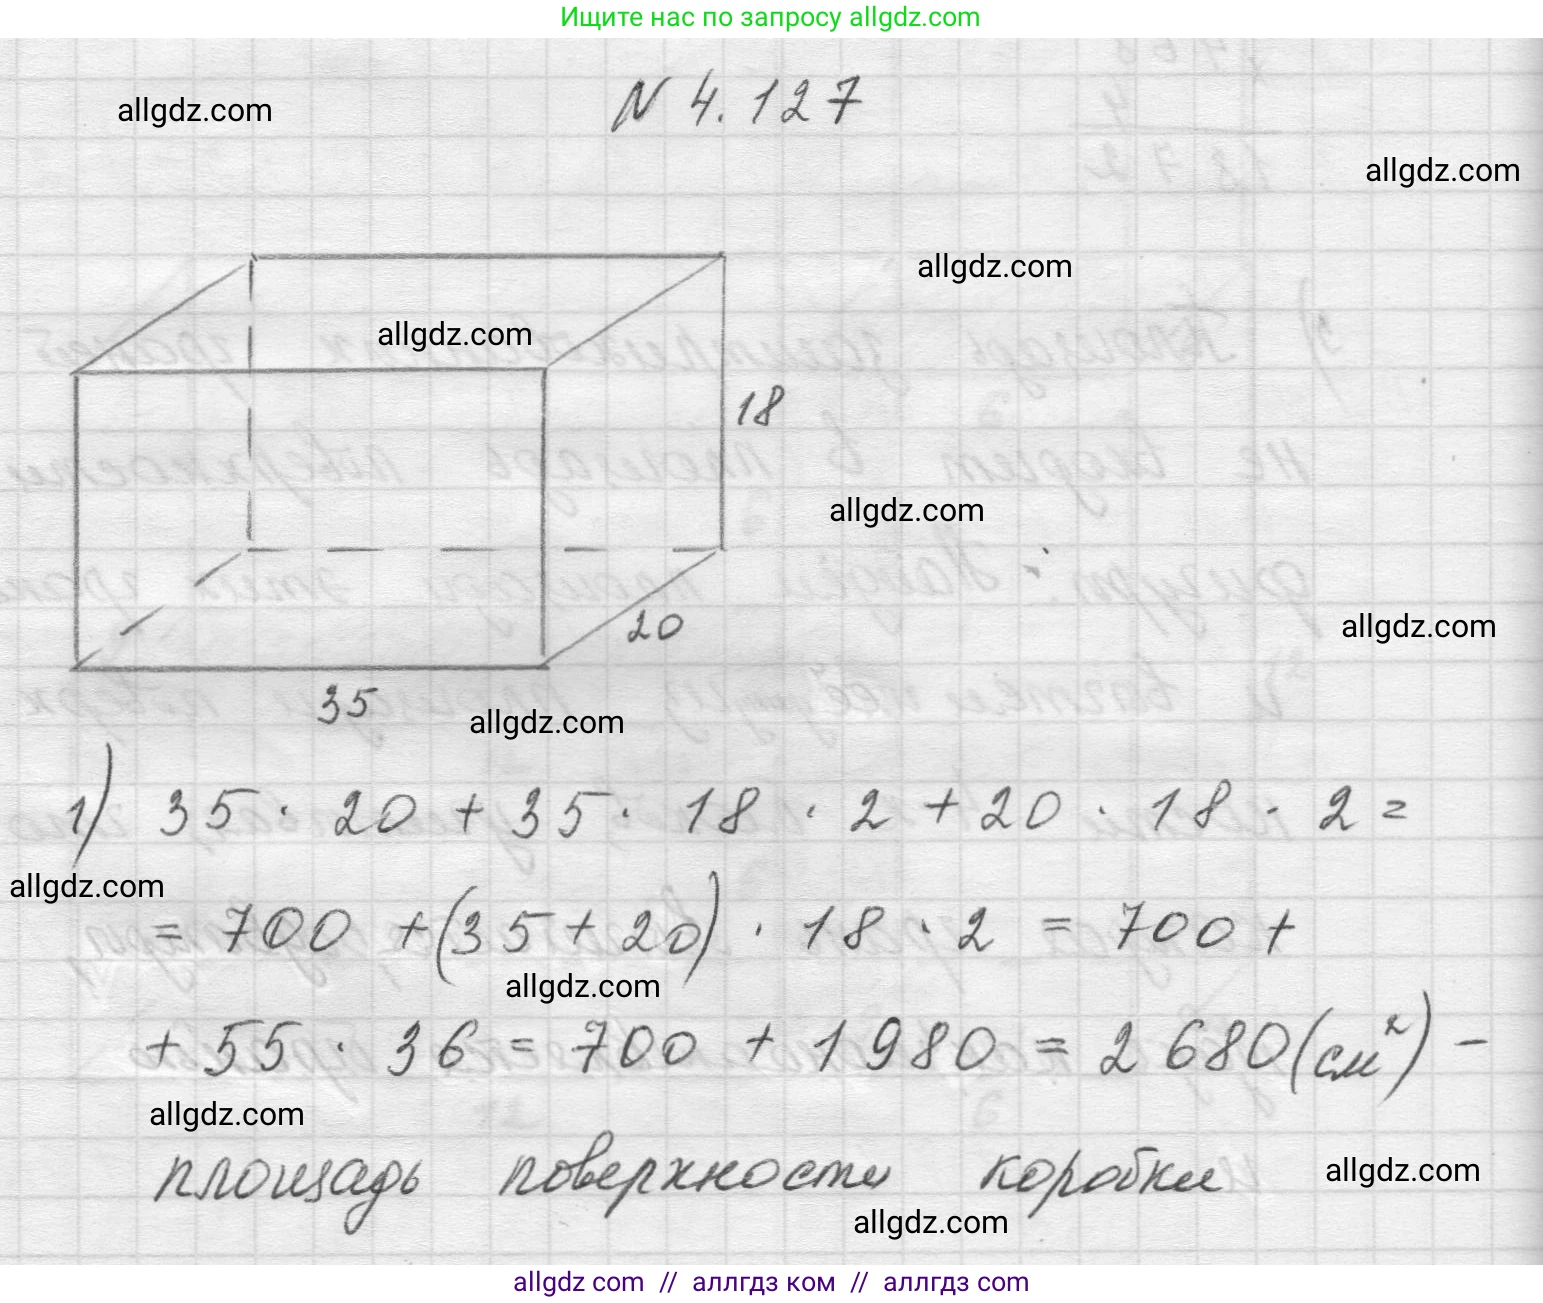 Ищите нас по запросу allgdz.com
N 4.127
allgdz.com
allgdz.com
allgdz.com
allgdz.com
18
allgdz.com
20
allgdz.com
35
allgdz.com
1) 35 · 20 + 35 · 18 · 2 + 20 · 18 · 2 =
allgdz.com
= 700 + (35 + 20) · 18 · 2 = 700 +
allgdz.com
+ 55 · 36 = 700 + 1980 = 2680 (см²) –
allgdz.com
площадь поверхности коробки
allgdz.com
allgdz.com
allgdz com // аллгдз ком // allgdz com